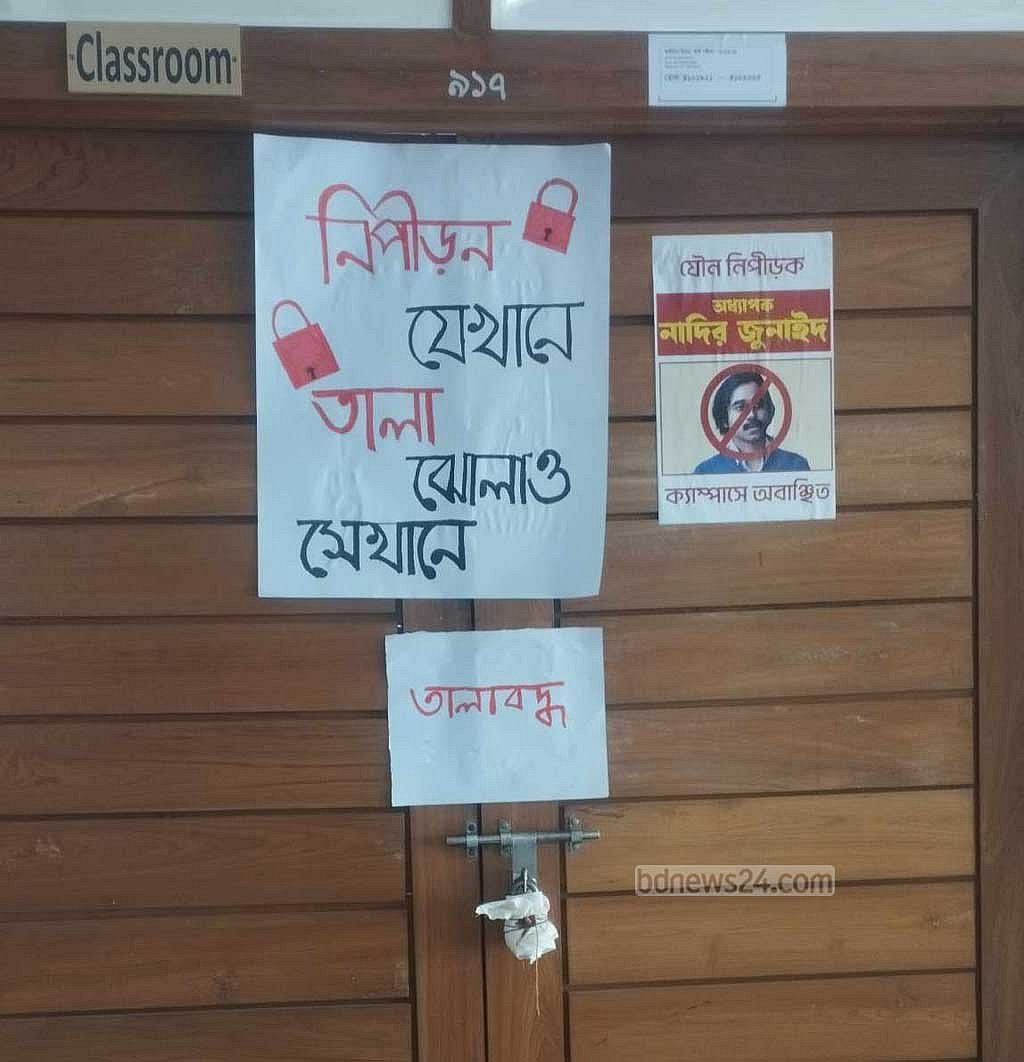 Classroom
৯১৭
নিপীড়ন
যেখানে
তালা
ঝোলাও
সেখানে
যৌন নিপীড়ক
অধ্যাপক
নাদির জুনাইদ
ক্যাম্পাসে অবাঞ্ছিত
তালাবদ্ধ
bdnews24.com